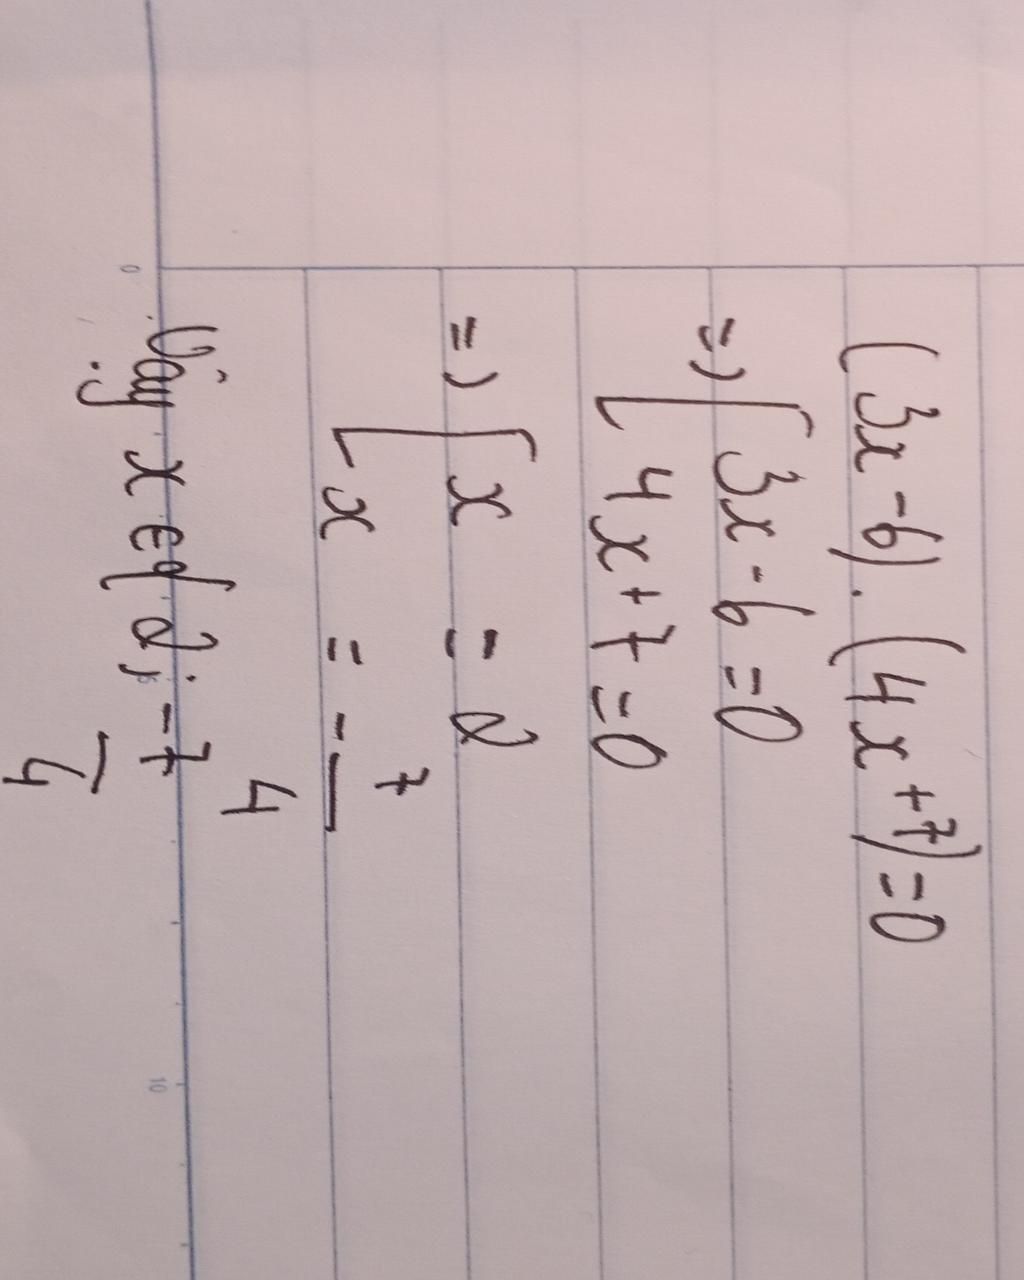 (3x-6).(4x+7)=0
=) [ 3x-6=0
4x+7=0
=) [ x = 2
x = -7/4
Vậy x ∈ { 2; -7/4
0 5 10